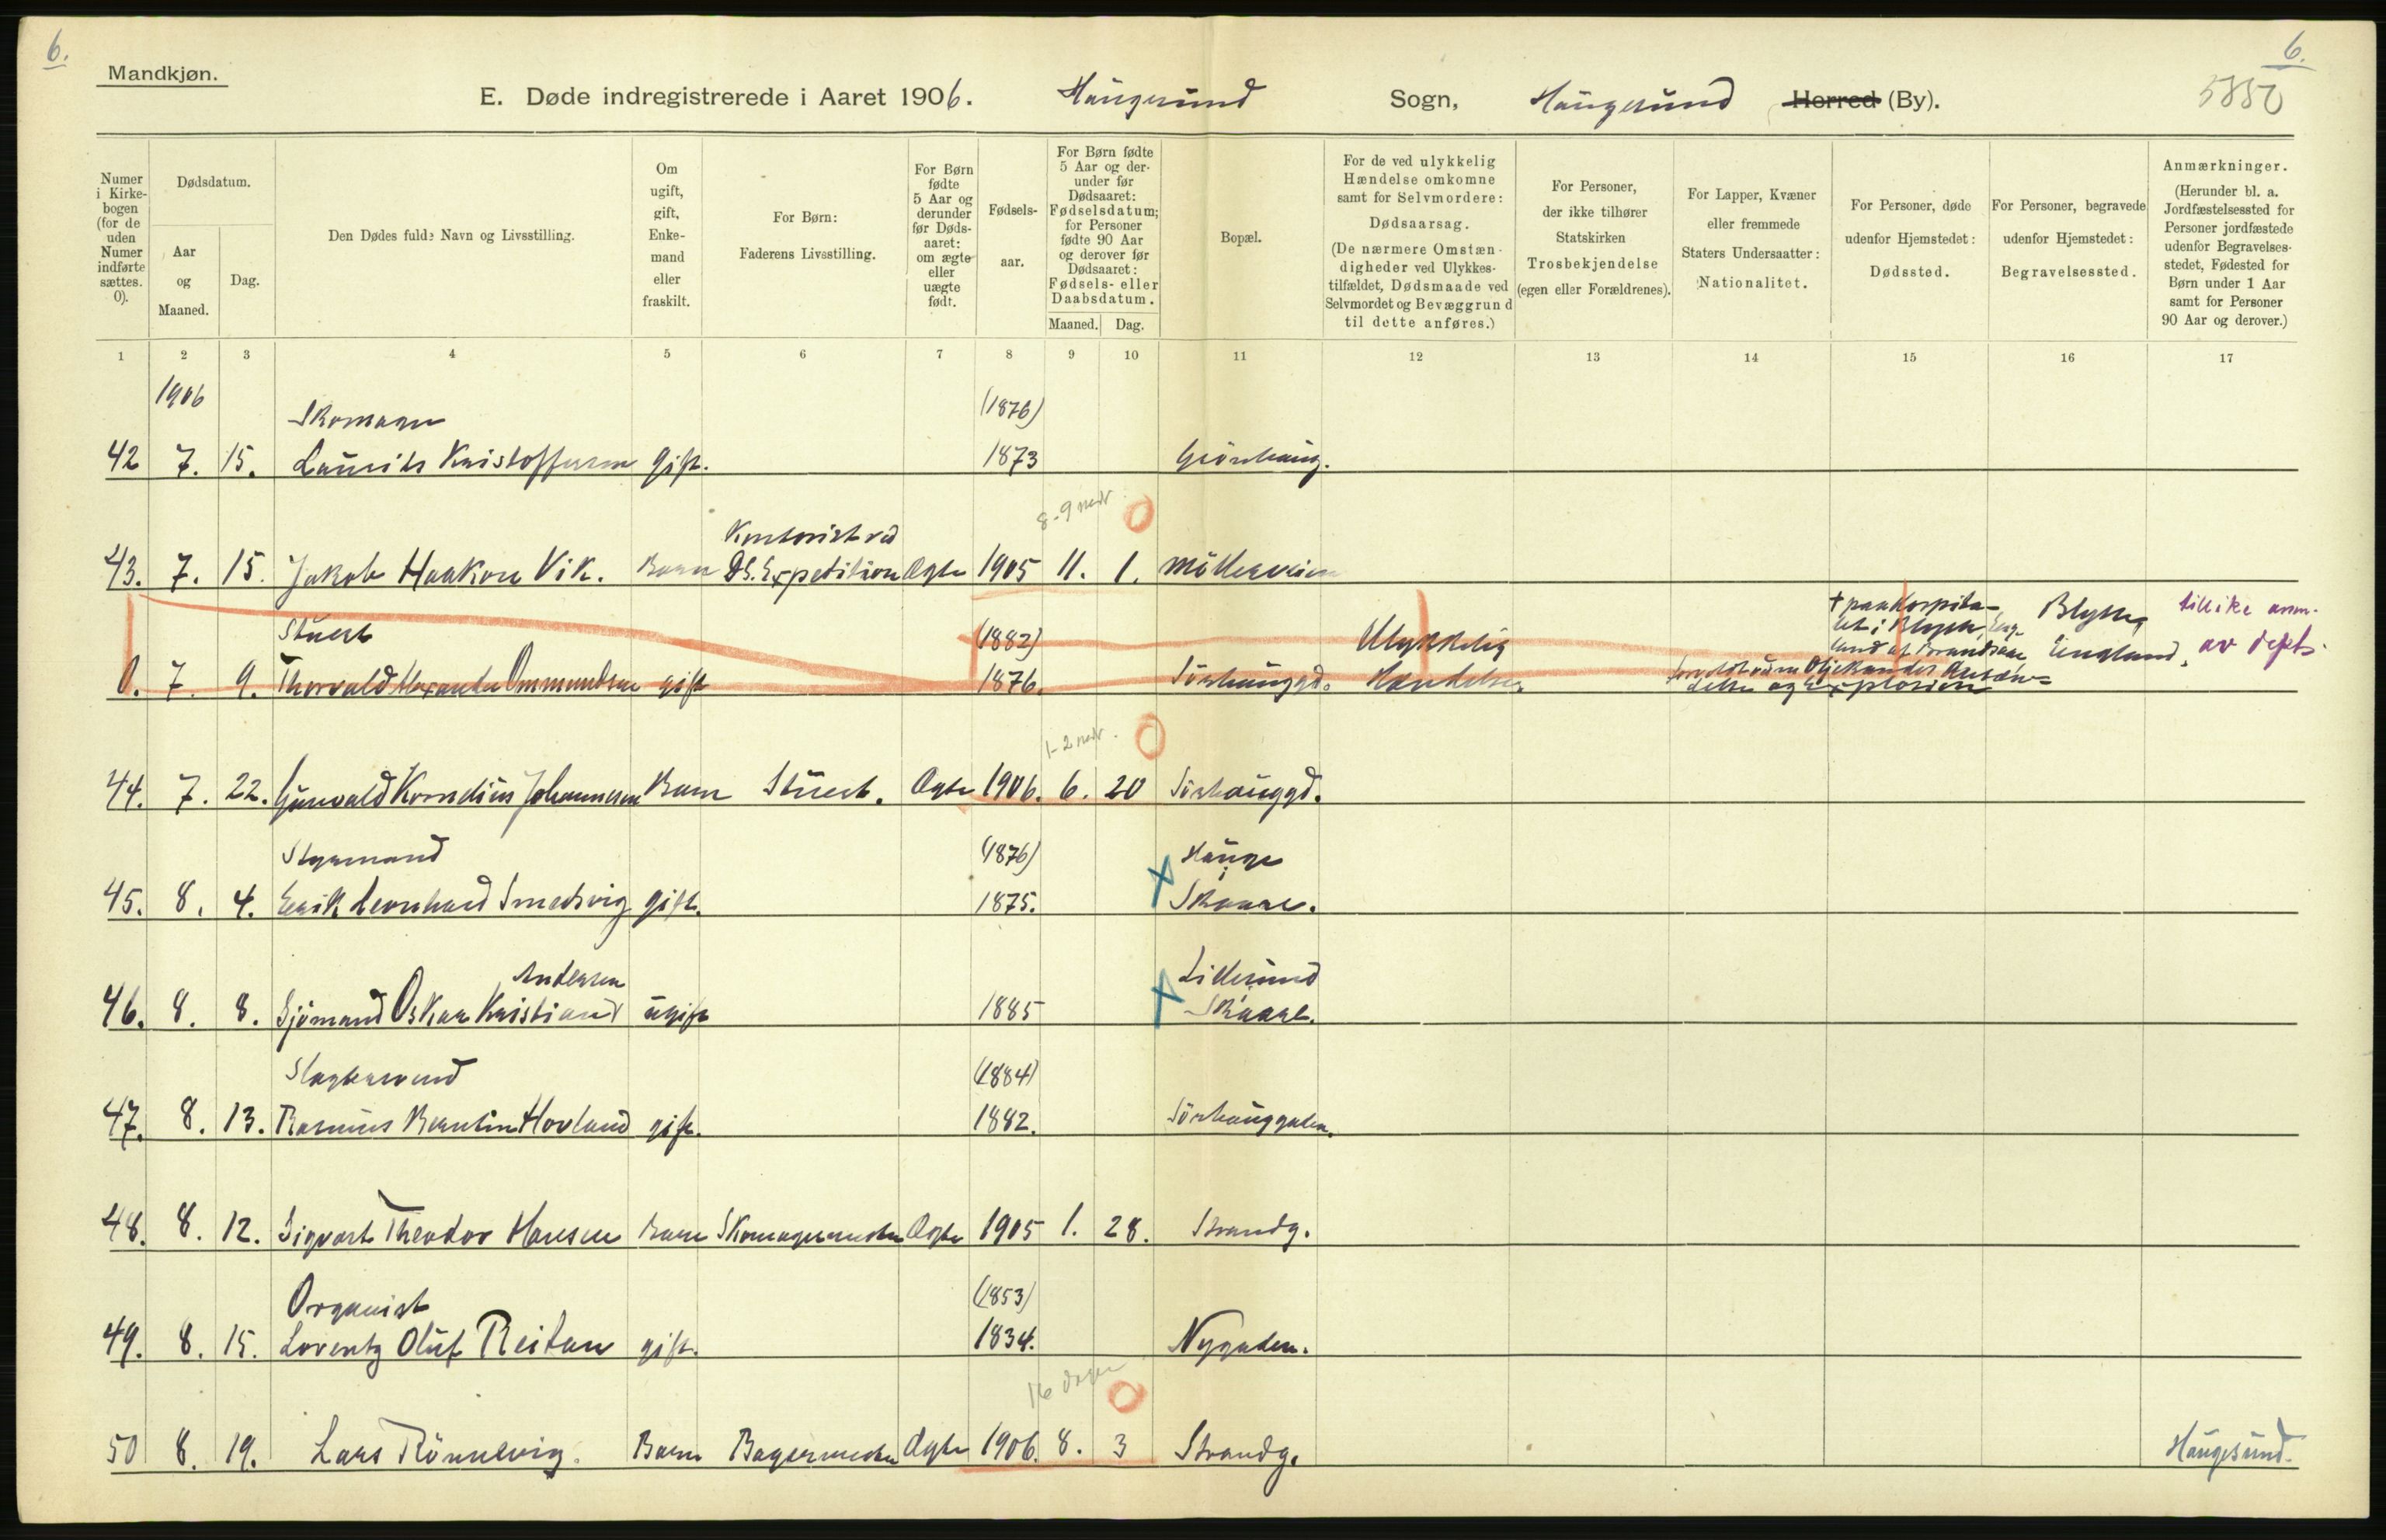 6.
6.
Mandkjøn.
E. Døde indregistrerede i Aaret 1906. Haugesund Sogn, Haugesund Herred (By).
5850
Numer i Kirkebogen (for de uden Numer indførte sættes. 0).
Dødsdatum.
Aar og Maaned.
Dag.
Den Dødes fulde Navn og Livsstilling.
Om ugift, gift, Enkemand eller fraskilt.
For Børn: Faderens Livsstilling.
For Børn fødte 5 Aar og derunder før Dødsaaret: om ægte eller uægte født.
Fødselsaar.
For Børn fødte 5 Aar og derunder før Dødsaaret: Fødselsdatum; for Personer fødte 90 Aar og derover før Dødsaaret: Fødsels- eller Daabsdatum.
Maaned. Dag.
Bopæl.
For de ved ulykkelig Hændelse omkomne samt for Selvmordere: Dødsaarsag. (De nærmere Omstændigheder ved Ulykkestilfældet, Dødsmaade ved Selvmordet og Bevæggrund til dette anføres.)
For Personer, der ikke tilhører Statskirken Trosbekjendelse (egen eller Forældrenes).
For Lapper, Kvæner eller fremmede Staters Undersaatter: Nationalitet.
For Personer, døde udenfor Hjemstedet: Dødssted.
For Personer, begravede udenfor Hjemstedet: Begravelsessted.
Anmærkninger. (Herunder bl. a. Jordfæstelsessted for Personer jordfæstede udenfor Begravelsesstedet, Fødested for Børn under 1 Aar samt for Personer 90 Aar og derover.)
1 2 3 4 5 6 7 8 9 10 11 12 13 14 15 16 17
1906
Skomager (1876)
42 7. 15. Laurits Kristoffersen gift. 1873 Grönhaug.
8-9 mdr
Kontorist ved
43. 7. 15. Jakob Haakon Vik. Barn D.S. Expedition Ægte 1905 11. 1. Möllerveien
Stuert (1882) Ulykkelig + paa Hospita- Blyth, tillike anm.
let i Blyth, Eng-
land af Brandsaar England. av dept.
0. 7. 9. Thorvald Alexander Ommundsen gift 1876. Sörhauggd. Hændelse
delse og Explosion
1-2 mdr.
44. 7. 22. Gunvald Kornelius Johannesen Barn Stuert. Ægte 1906. 6. 20 Sörhauggd.
Styrmand (1876) Hauge
45. 8. 4. Erik Leonhard Smedsvig gift. 1875. Skaare.
Andersen Lillesund
46. 8. 8. Sjömand Oskar Kristian ugift 1885 Skaare.
Slagtersvend (1884)
47. 8. 13. Rasmus Berntin Hovland gift. 1882. Sörhauggaden.
48. 8. 12. Sigvart Theodor Hansen Barn Skomagermester Ægte 1905 1. 28. Strandg.
Organist (1853)
49. 8. 15. Lorentz Oluf Reitan gift. 1834. Nygaden.
16 dage
50 8. 19. Lars Rönnevig. Barn Bagermester Ægte 1906. 8. 3 Strandg. Haugesund.